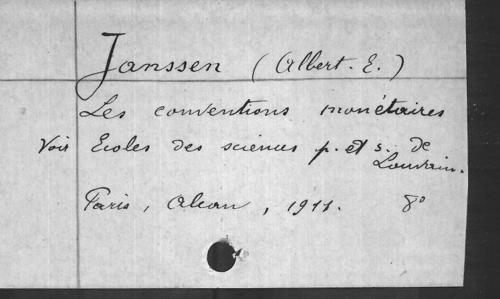 Janssen (Albert. E.)
Les conventions monétaires
Voir Ecoles des sciences p. et s. de Louvain.
Paris, Alcan, 1911. 8°